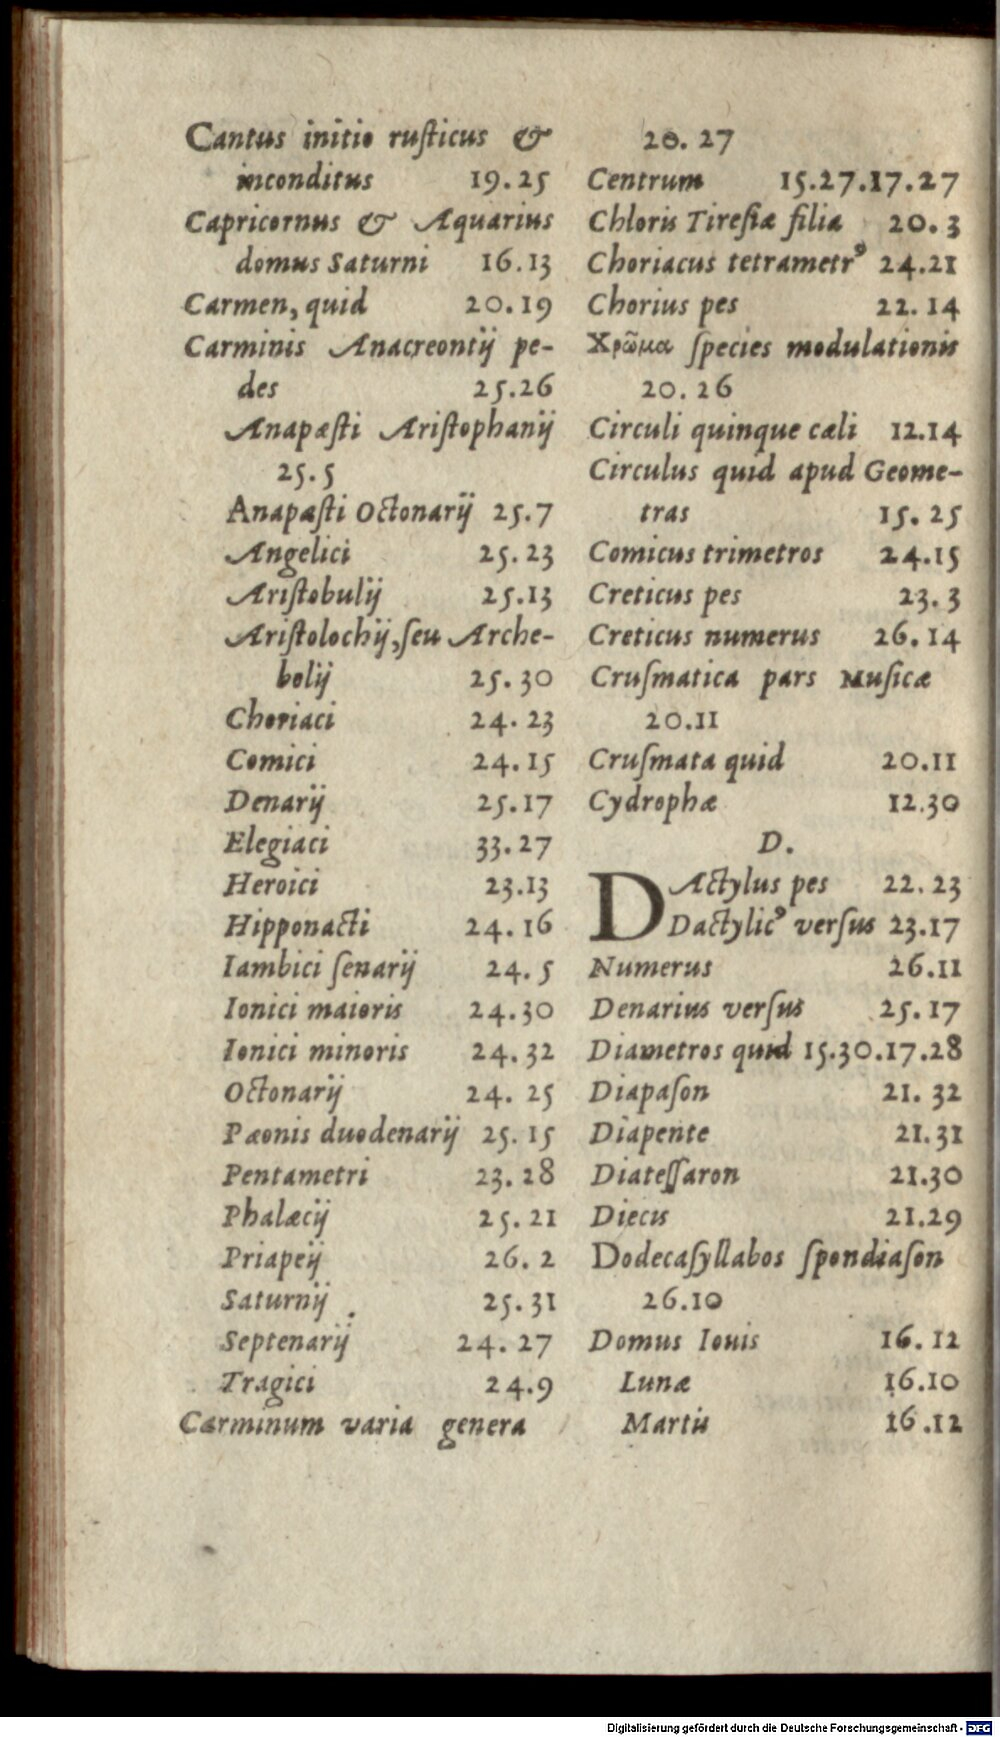 Cantus initio rusticus &
inconditus 19.25
Capricornus & Aquarius
domus Saturni 16.13
Carmen, quid 20.19
Carminis Anacreontij pe-
des 25.26
Anapæsti Aristophanij
25.5
Anapæsti Octonarij 25.7
Angelici 25.23
Aristobulij 25.13
Aristolochij, seu Arche-
bolij 25.30
Choriaci 24.23
Comici 24.15
Denarij 25.17
Elegiaci 33.27
Heroici 23.13
Hipponacti 24.16
Iambici senarij 24.5
Ionici maioris 24.30
Ionici minoris 24.32
Octonarij 24.25
Pæonis duodenarij 25.15
Pentametri 23.28
Phalæcij 25.21
Priapeij 26.2
Saturnij 25.31
Septenarij 24.27
Tragici 24.9
Carminum varia genera
20.27
Centrum 15.27.17.27
Chloris Tiresiæ filia 20.3
Choriacus tetrametrꝰ 24.21
Chorius pes 22.14
Χρῶμα species modulationis
20.26
Circuli quinque cæli 12.14
Circulus quid apud Geome-
tras 15.25
Comicus trimetros 24.15
Creticus pes 23.3
Creticus numerus 26.14
Crusmatica pars Musicæ
20.11
Crusmata quid 20.11
Cydrophæ 12.30
D.
DActylus pes 22.23
Dactylicꝰ versus 23.17
Numerus 26.11
Denarius versus 25.17
Diametros quid 15.30.17.28
Diapason 21.32
Diapente 21.31
Diatessaron 21.30
Diecis 21.29
Dodecasyllabos spondiason
26.10
Domus Iouis 16.12
Lunæ 16.10
Martis 16.12
Digitalisierung gefördert durch die Deutsche Forschungsgemeinschaft - DFG